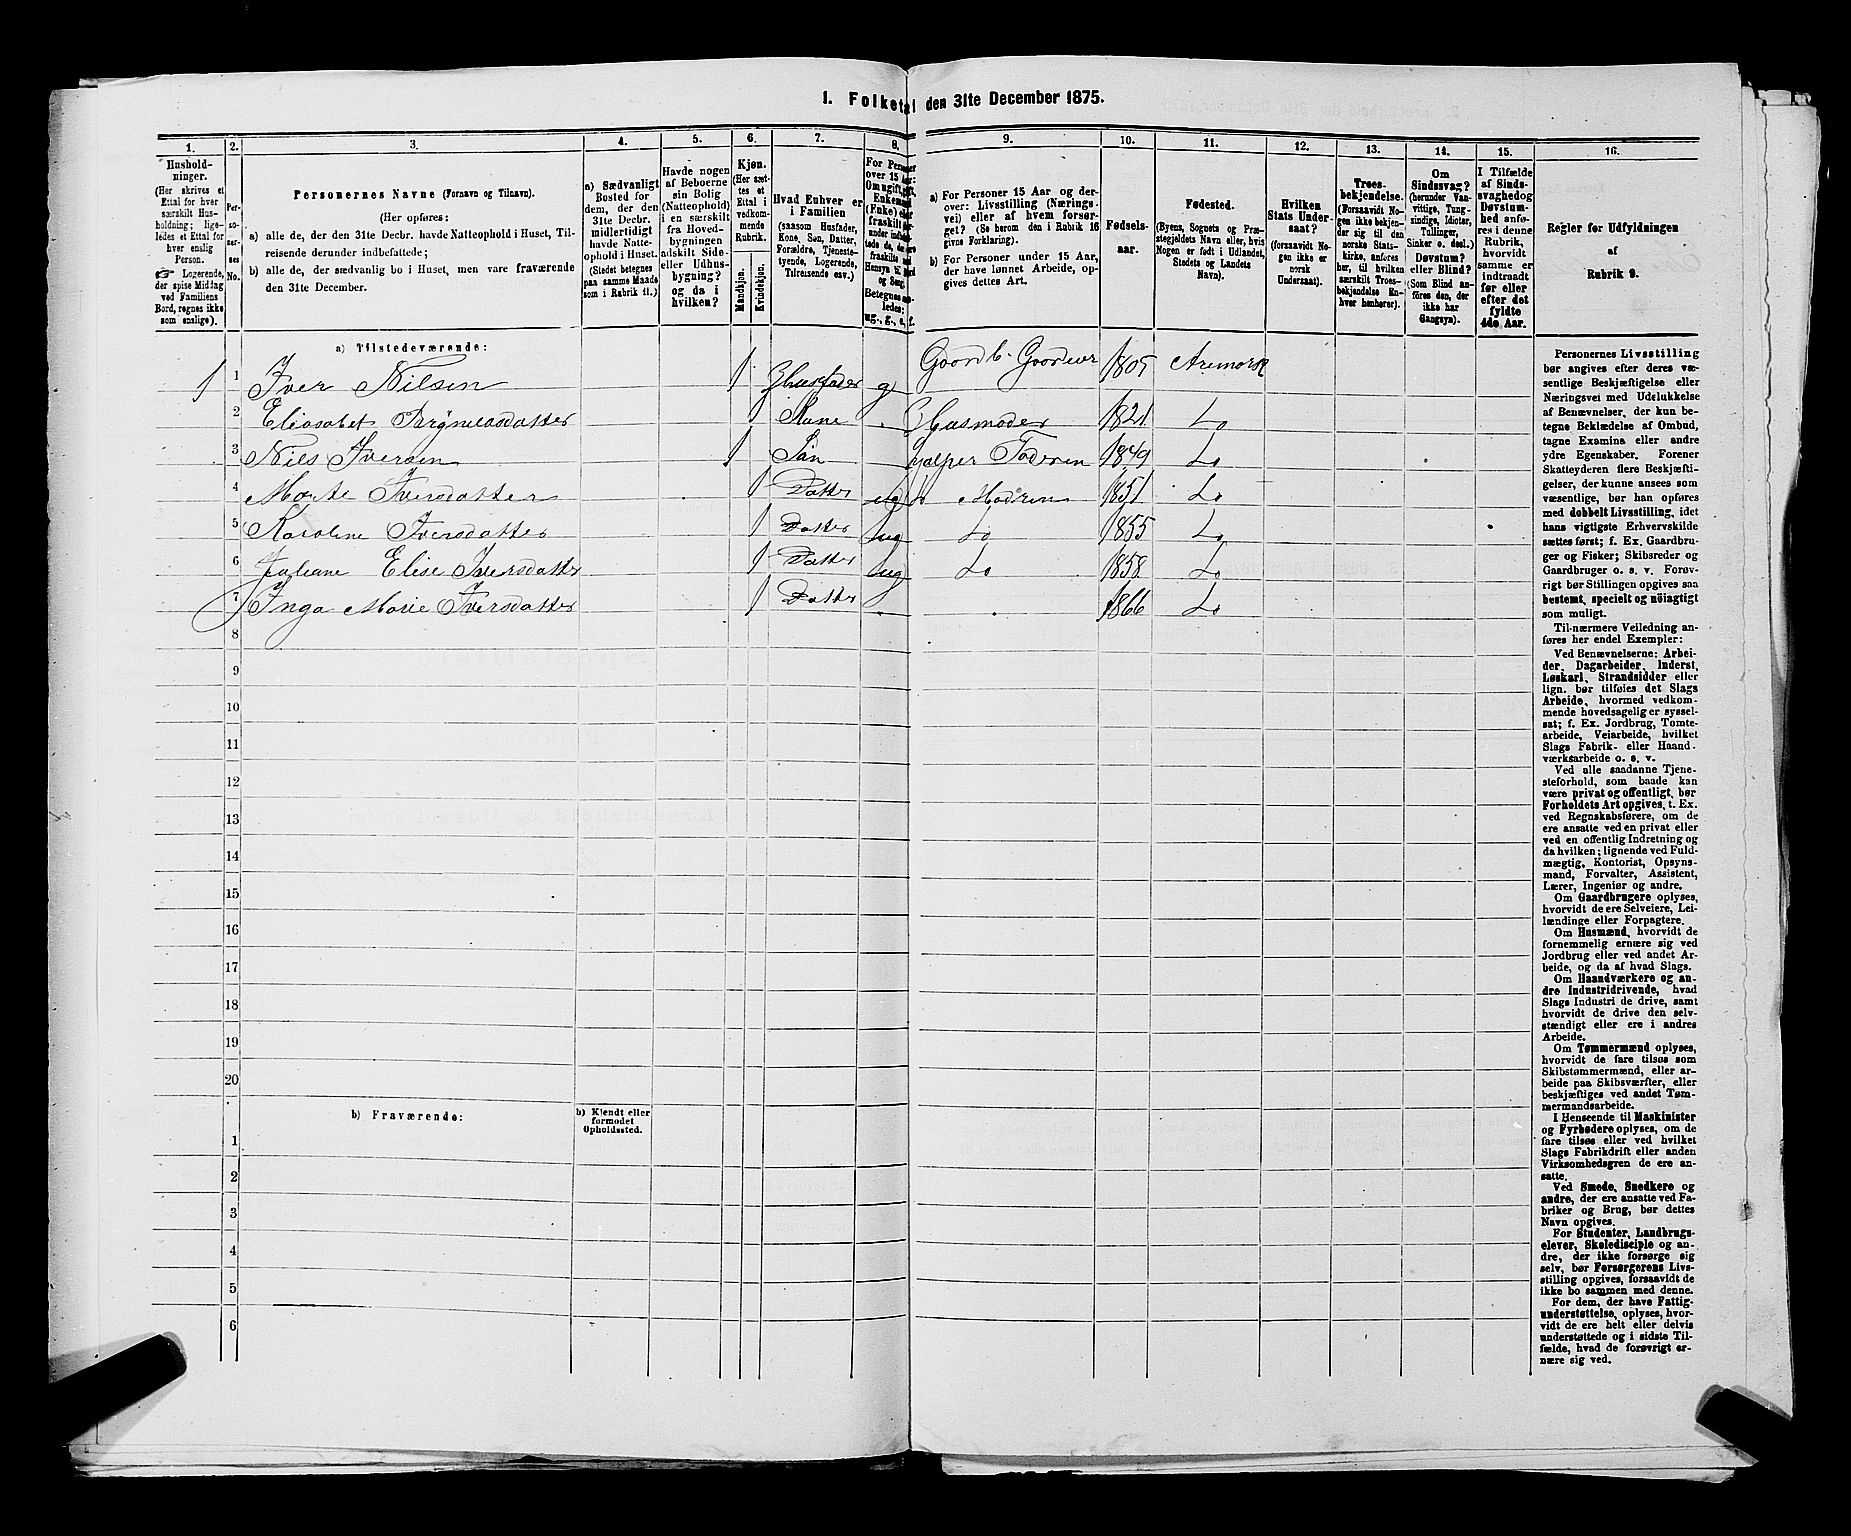 1. Folketal den 31te December 1875.
1.
2.
3.
4.
5.
6.
7.
8.
9.
10.
11.
12.
13.
14.
15.
16.
Hushold-
ninger.
(Her skrives et
Ettal for hver
særskilt Hus-
holdning; lige-
ledes et Ettal for
hver enslig
Person.
☛ Logerende,
der spise Middag
ved Familiens
Bord, regnes ikke
som enslige).
Per-
soner-
nes
No.
Personernes Navne (Fornavn og Tilnavn).
(Her opføres:
a) alle de, der den 31te Decbr. havde Natteophold i Huset, Til-
reisende derunder indbefattede;
b) alle de, der sædvanlig bo i Huset, men vare fraværende
den 31te December.
a) Sædvanligt
Bosted for
dem, der den
31te Decbr.
midlertidigt
havde Natte-
ophold i Huset.
(Stedet betegnes
paa samme Maade
som i Rubrik 11.)
Havde nogen
af Beboerne
sin Bolig
(Natteophold)
i en særskilt
fra Hoved-
bygningen
adskilt Side-
eller Udhus-
bygning?
og da i
hvilken?
Kjøn.
(Her sæt-
tes et
Ettal i
vedkom-
mende
Rubrik.
Mandkjøn.
Kvindekjøn.
Hvad Enhver er
i Familien
(saasom Husfader,
Kone, Søn, Datter,
Forældre, Tjeneste-
tyende, Logerende,
Tilreisende osv.)
For Personer
over 15 Aar:
Om ugift, gift,
Enkemand
(Enke) eller
fraskilt
Betegnes saa-
ledes:
ug., g., e., f.
a) For Personer 15 Aar og der-
over: Livsstilling (Nærings-
vei) eller af hvem forsør-
get? (Se herom den i Rubrik 16
givne Forklaring).
b) For Personer under 15 Aar,
der have lønnet Arbeide, op-
gives dettes Art.
Fødsels-
aar.
Fødested.
(Byens, Sognets og Præ-
stegjeldets Navn eller, hvis
Nogen er født i Udlandet,
Stedets og Landets
Navn).
Hvilken
Stats Under-
saat?
(forsaavidt No-
gen ikke er
norsk
Undersaat).
Troes-
bekjendelse.
(Forsaavidt No-
gen ikke bekjen-
der sig til den
norske Stats-
kirke, anføres
her, til hvilken
særskilt Troes-
bekjendelse En-
hver henhører).
Om
Sindssvag?
(herunder Van-
vittige, Tung-
sindige, Idioter,
Tullinger,
Sinker o. desl.)
Døvstum?
eller Blind?
(Som Blind an-
føres den, der
ikke har
Gangsyn).
I Tilfælde
af Sinds-
svaghed og
Døvstum-
hed anfø-
res i denne
Rubrik,
hvorvidt
samme er
indtraadt
før eller
efter det
fyldte
4de Aar.
Regler for Udfyldningen
af
Rubrik 9.
a) Tilstedeværende:
1 1 Iver Nilsen 1 Husfader g Gaardb. Gaardeier 1805 Aremark
2 Elisabet 1 Kone „ Husmoder 1821 Do
3 Nils Iversen 1 Søn hjælper Faderen 1849 Do
4 Marte Iversdatter 1 Datter ug do Modren 1851 Do
5 Karoline Iversdatter 1 Datter ug Do 1855 Do
6 Juliane Elise Iversdatter 1 Datter ug Do 1858 Do
7 Inga Marie Iversdatter 1 Datter „ „ 1866 Do
8
9
10
11
12
13
14
15
16
17
18
19
20
b) Fraværende:
b) Kjendt eller
formodet
Opholdssted.
1
2
3
4
5
6
Personernes Livsstilling
bør angives efter deres væ-
sentlige Beskjæftigelse eller
Næringsvei med Udelukkelse
af Benævnelser, der kun be-
tegne Beklædelse af Ombud,
tagne Examina eller andre
ydre Egenskaber. Forener
Skatteyderen flere Beskjæfti-
gelser, der kunne ansees som
væsentlige, bør han opføres
med dobbelt Livsstilling, idet
hans vigtigste Erhvervskilde
sættes først; f. Ex. Gaardbru-
ger og Fisker; Skibsreder og
Gaardbruger o. s. v. Forøv-
rigt bør Stillingen opgives saa
bestemt, specielt og nöiagtigt
som muligt.
Til nærmere Veiledning an-
føres her endel Exempler:
Ved Benævnelserne: Arbei-
der, Dagarbeider, Inderst,
Løskarl, Strandsidder eller
lign. bør tilføies det Slags
Arbeide, hvormed vedkom-
mende hovedsagelig er syssel-
sat; f. Ex. Jordbrug, Tomte-
arbeide, Veiarbeide, hvilket
Slags Fabrik- eller Haand-
værksarbeide o. s. v.
Ved alle saadanne Tjene-
steforhold, som baade kan
være privat og offentligt, bør
Forholdets Art opgives, t. Ex.
ved Regnskabsførere, om de
ere ansatte ved en privat eller
ved en offentlig Indretning og
da hvilken; lignende ved Fuld-
mægtig, Kontorist, Opsyns-
mand, Forvalter, Assistent,
Lærer, Ingeniør og andre.
Om Gaardbrugere oplyses,
hvorvidt de ere Selveiere, Lei-
lændinge eller Forpagtere.
Om Husmænd, hvorvidt de
fornemmelig ernære sig ved
Jordbrug eller ved andet Ar-
beide, og da af hvad Slags.
Om Haandværkere og an-
dre Industridrivende, hvad
Slags Industri de drive, samt
hvorvidt de drive den selv-
stændigt eller ere i andres
Arbeide.
Om Tømmermænd oplyses,
hvorvidt de fare tilsøs som
Skibstømmermænd, eller ar-
beide paa Skibsværfter, eller
beskjæftiges ved andet Tøm-
mermandsarbeide.
I Henseende til Maskinister
og Fyrbødere oplyses, om de
fare tilsøs eller ved hvilket
Slags Fabrikdrift eller anden
Virksomhedsgren de ere an-
satte.
Ved Smede, Snedkere og
andre, der ere ansatte ved Fa-
briker og Brug, bør dettes
Navn opgives.
For Studenter, Landbrugs-
elever, Skoledisciple og an-
dre, der ikke forsørge sig
selv, bør Forsørgerens Livs-
stilling opgives, forsaavidt de
ikke bo sammen med denne.
For dem, der have Fattig-
understøttelse, oplyses, hvor-
vidt de ere helt eller delvis
understøttede og i sidste Til-
fælde, hvad de forøvrigt er-
nære sig ved.